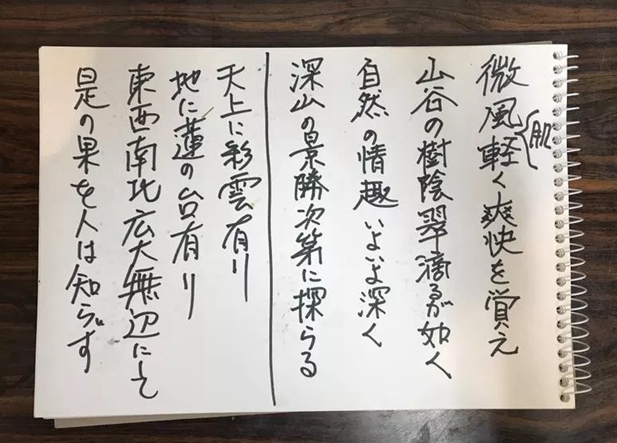 肌
微風軽く爽快を覚え
山谷の樹陰翠滴るが如く
自然の情趣いよいよ深く
深山の景勝次第に探らる
天上に彩雲有り
地に蓮の台有り
東西南北広大無辺にして
是の果を人は知らず